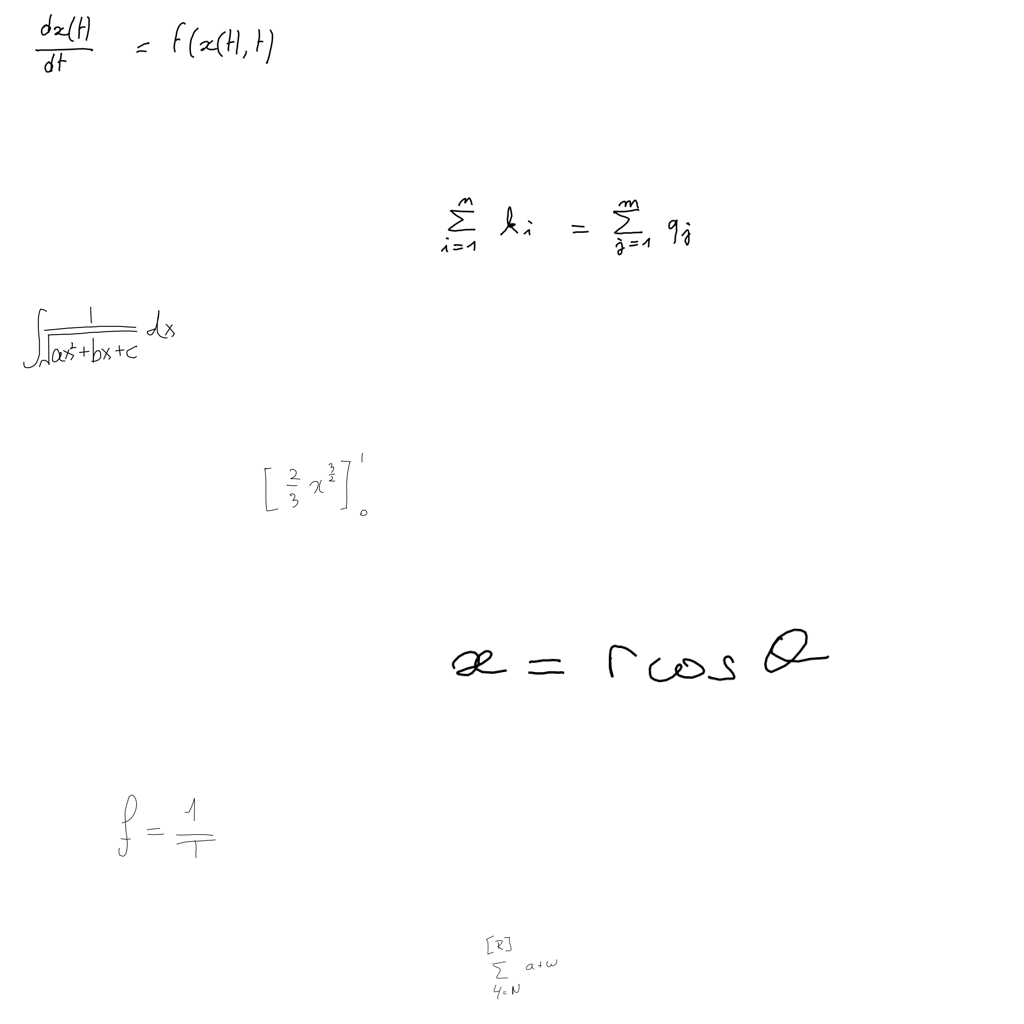 \frac{dx(t)}{dt} = f(x(t), t)
\sum_{i=1}^{n} k_i = \sum_{j=1}^{m} q_j
\int \frac{1}{\sqrt{ax^2+bx+c}} dx
\left[ \frac{2}{3} x^{\frac{3}{2}} \right]_0^1
x = r \cos \theta
f = \frac{1}{T}
\sum_{4=N}^{[R]} a+w